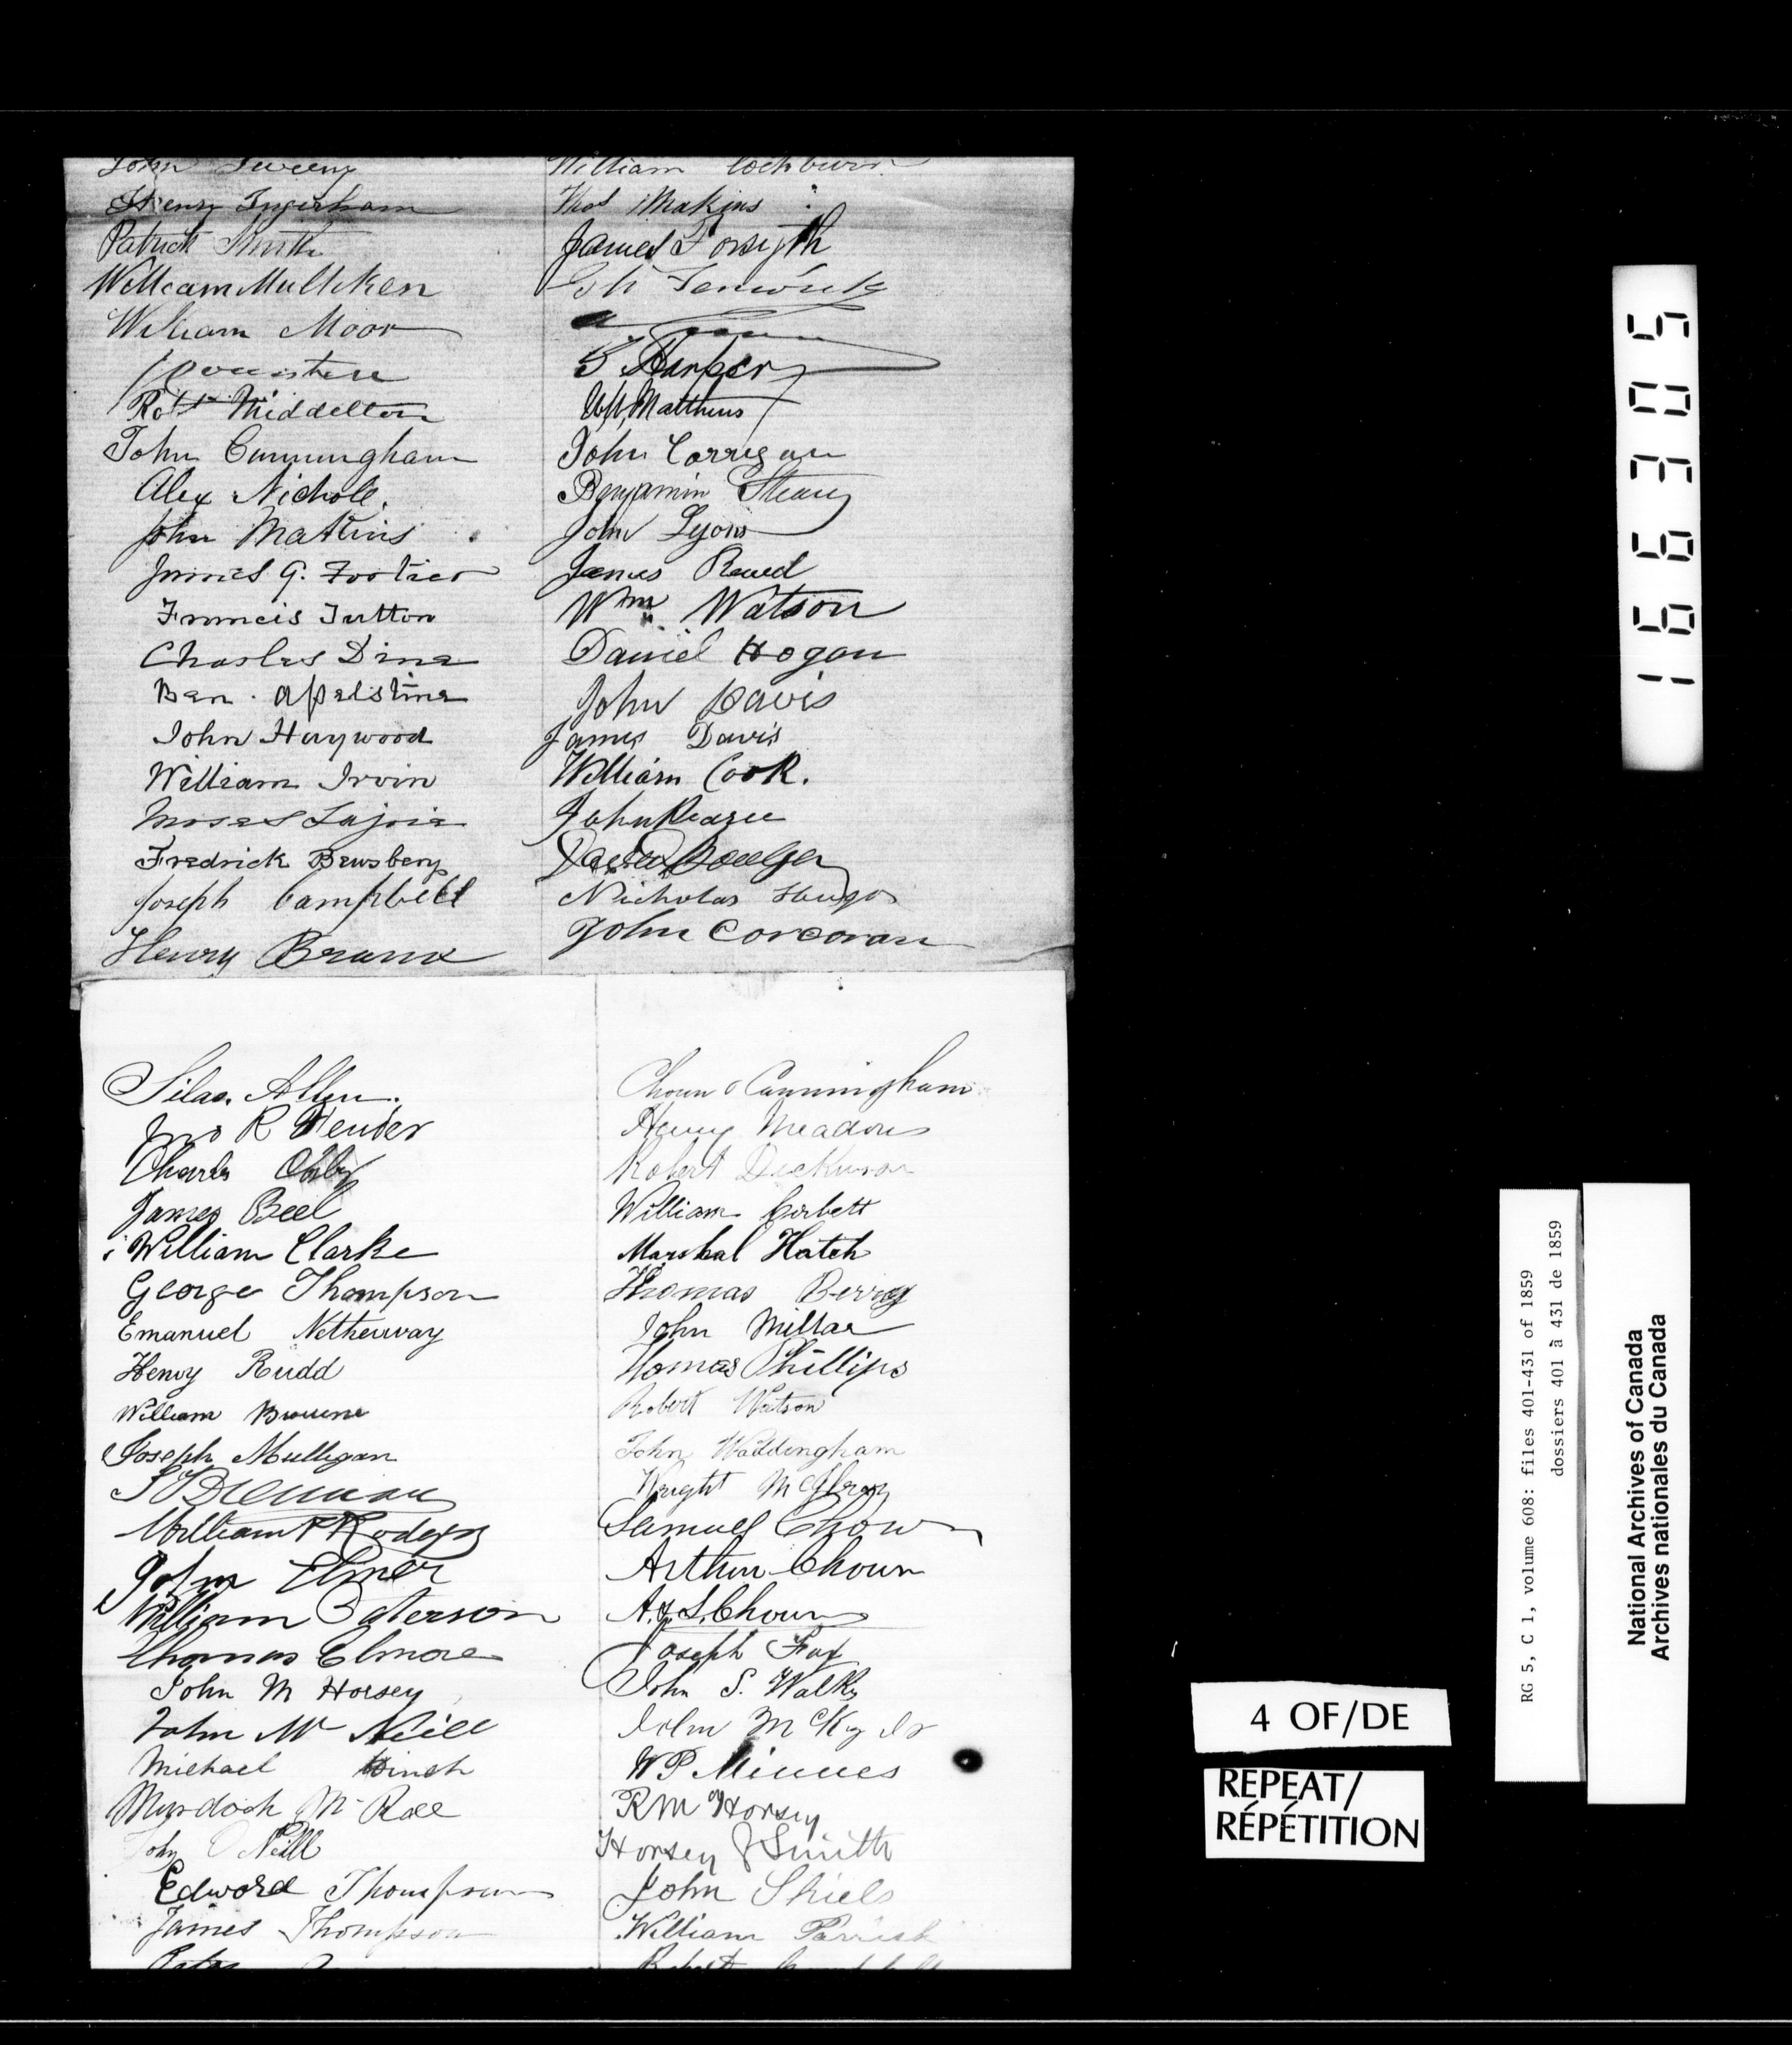 John Sweeny
Henry Ingerham
Patrick Smith
William Mulliken
William Moor
Robt Middelton
John Cunningham
Alex Nichole.
John Matkins
James G. Fortier
Francis Tutton
Charles Dina
Ben. apalstina
John Haywood
William Irvin
Moses Lajoie
Fredrick Bewsbery
Joseph Campbell
Henry Brand
William Cochburn
Thos Makins
James Forsyth
Harper
Wm Matthews
John Corrigan
Benjamin
John Lyons
James
Wm Watson
Daniel Hogan
John Davis
James Davis
William Cook.
John
Nicholas
John Corcoran
Silas Allen.
Jno R
Charles
James Beel
William Clarke
George Thompson
Emanuel Netherway
Henry Rudd
William Browne
Joseph Mulligan
William Rodgers
John Elmer
William Paterson
Thomas Elmore
John M Horsey
John Mc Neill
Michael Hinch
Murdoch Mc Rae
John O Neill
Edward Thompson
James Thompson
Chown & Cunningham
Henry Meadows
Robert Dickinson
William Corbett
Marshal Hatch
Thomas Berry
John Millar
Thomas Phillips
Robert Watson
John Waddingham
Wright
Samuel Chown
Arthur Chown
A. & S. Chown
Joseph Fox
John S. Walker
John McKay Jr
W P Minnes
R M Horsey
Horsey & Smith
John Shiels
William Parrish
166305
RG 5, C 1, volume 608: files 401-431 of 1859
dossiers 401 à 431 de 1859
National Archives of Canada
Archives nationales du Canada
4 OF/DE
REPEAT/
RÉPÉTITION